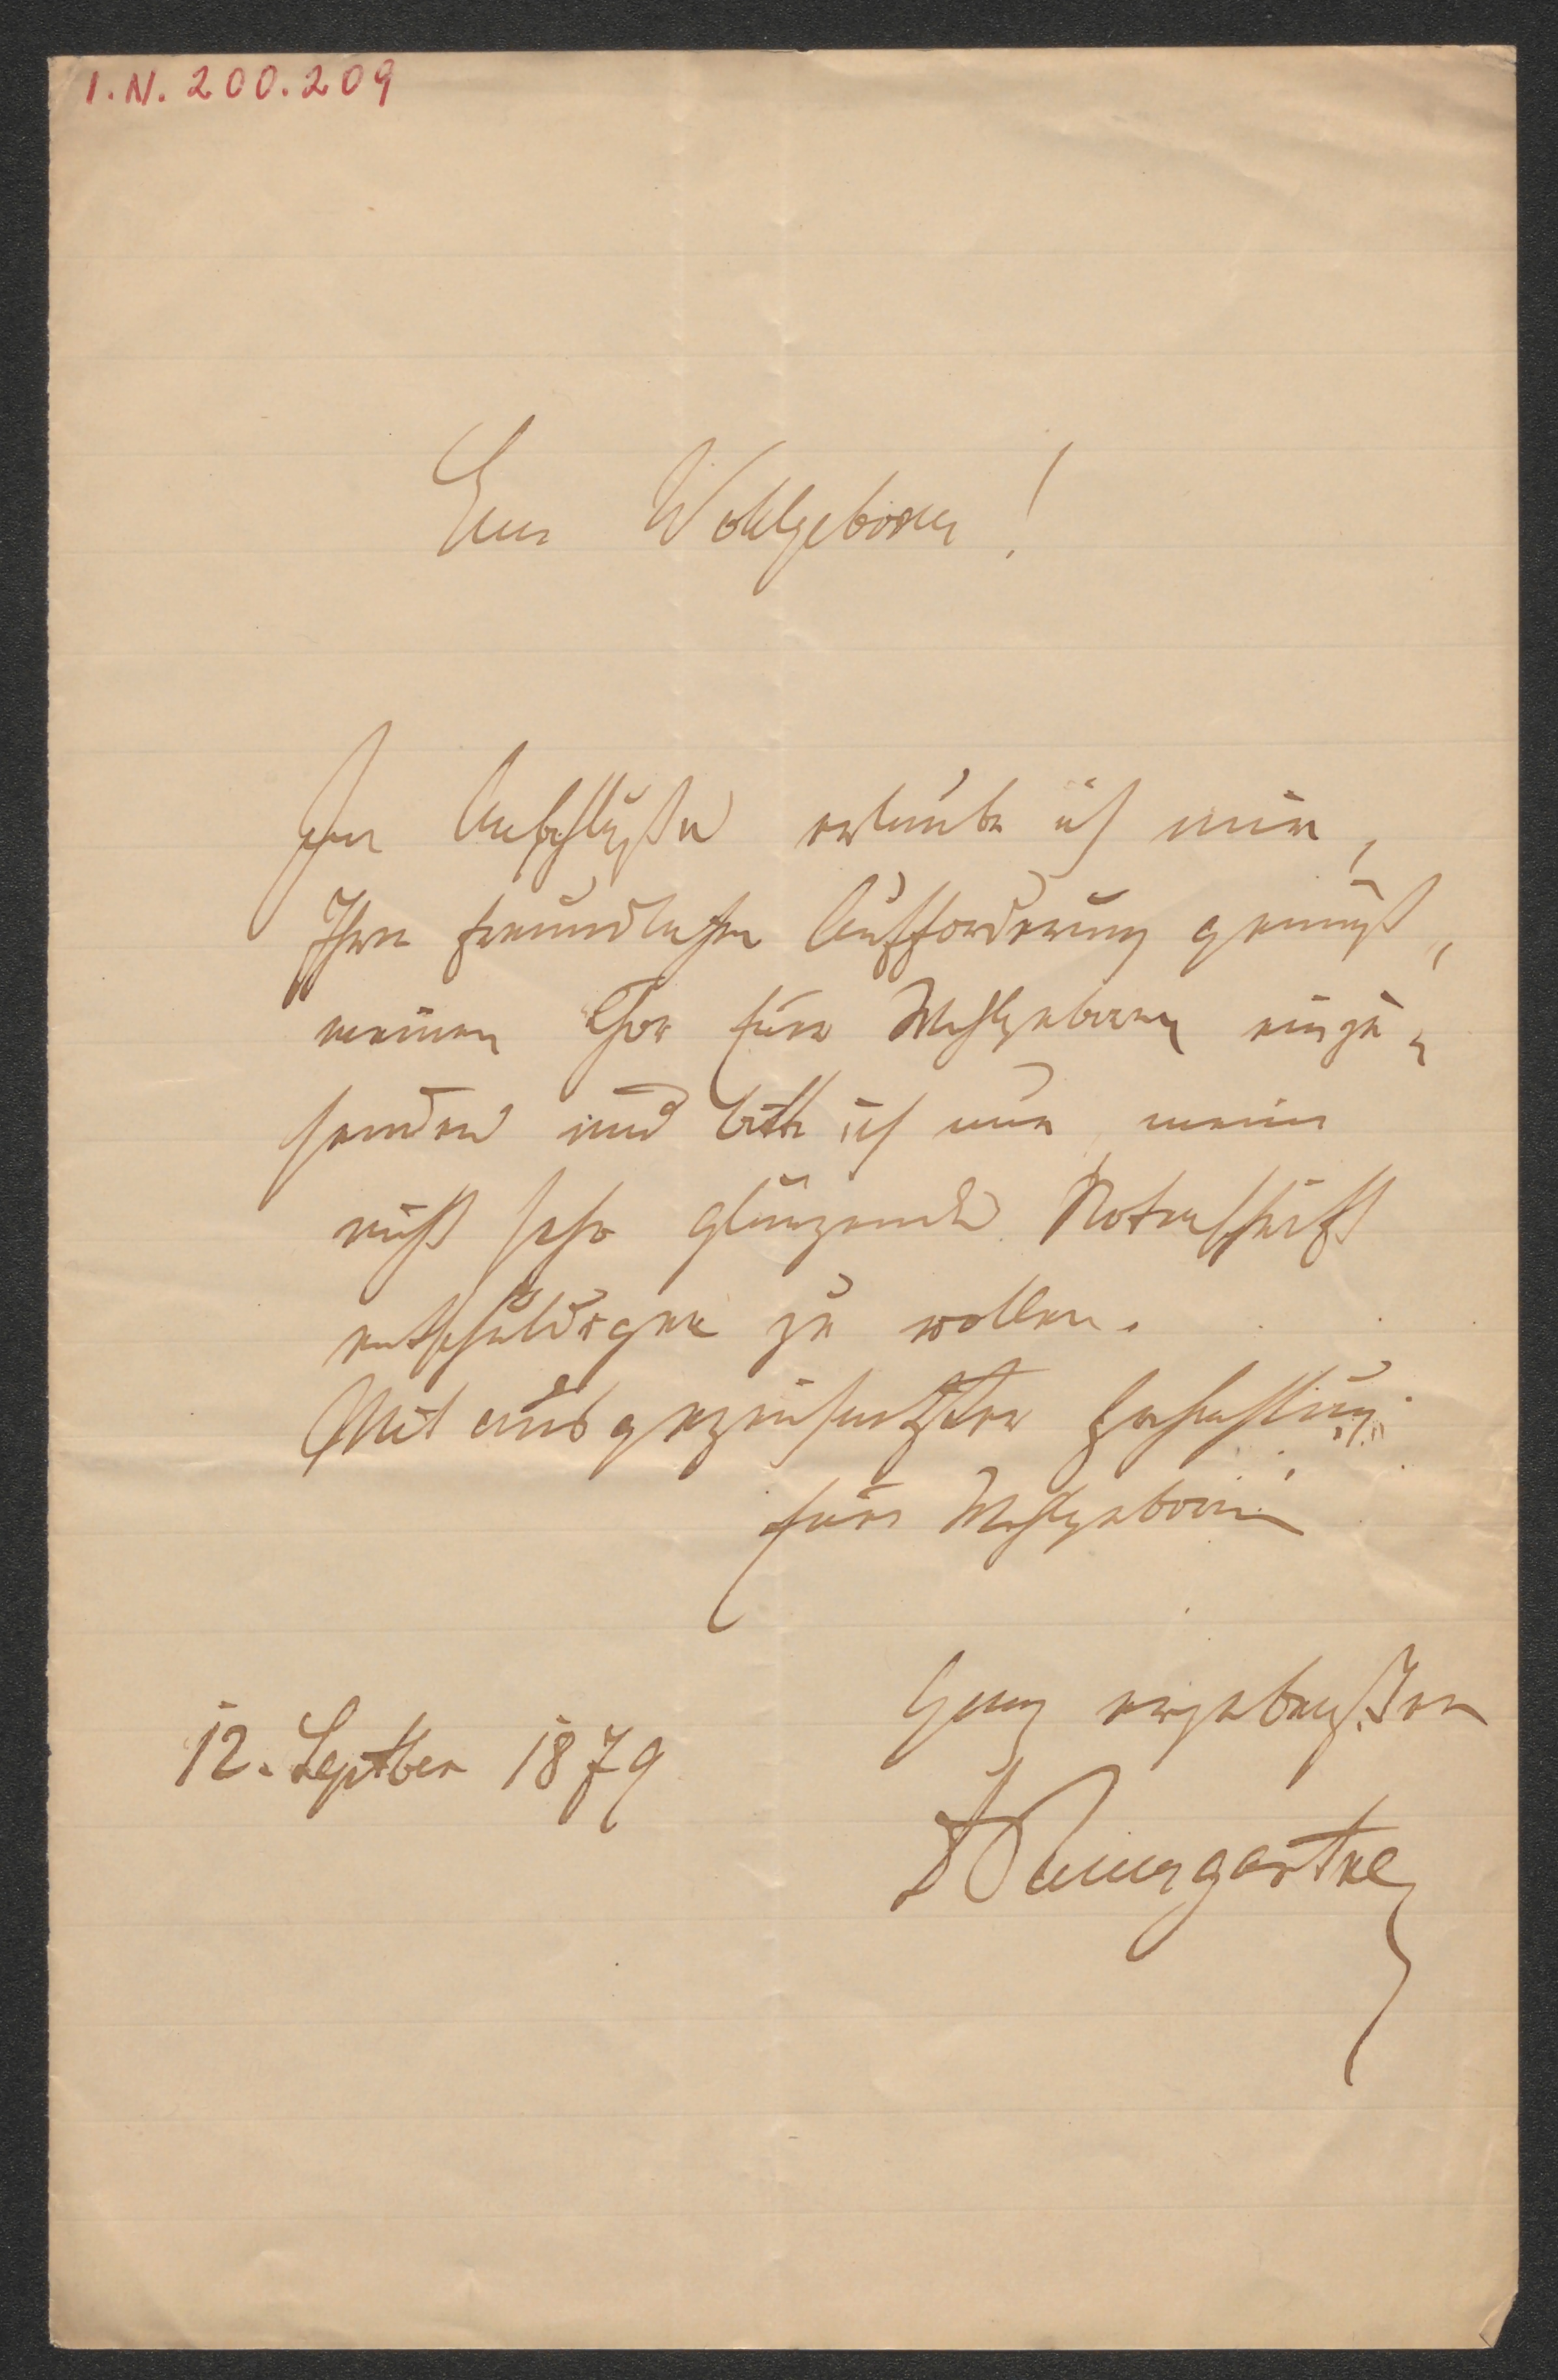 I.N. 200.209
Euer Wohlgeboren!
Im Anschlusse erlaube ich mir,
Ihrer freundlichen Aufforderung gemäß,
meinen Chor Euer Wohlgeboren einzu-
senden und bitte ich nur, meine
nicht sehr glänzende Notenschrift
entschuldigen zu wollen.
Mit ausgezeichnetster Hochachtung
Euer Wohlgeboren
Ganz ergebenster
12. Septber 1879
Baumgartner